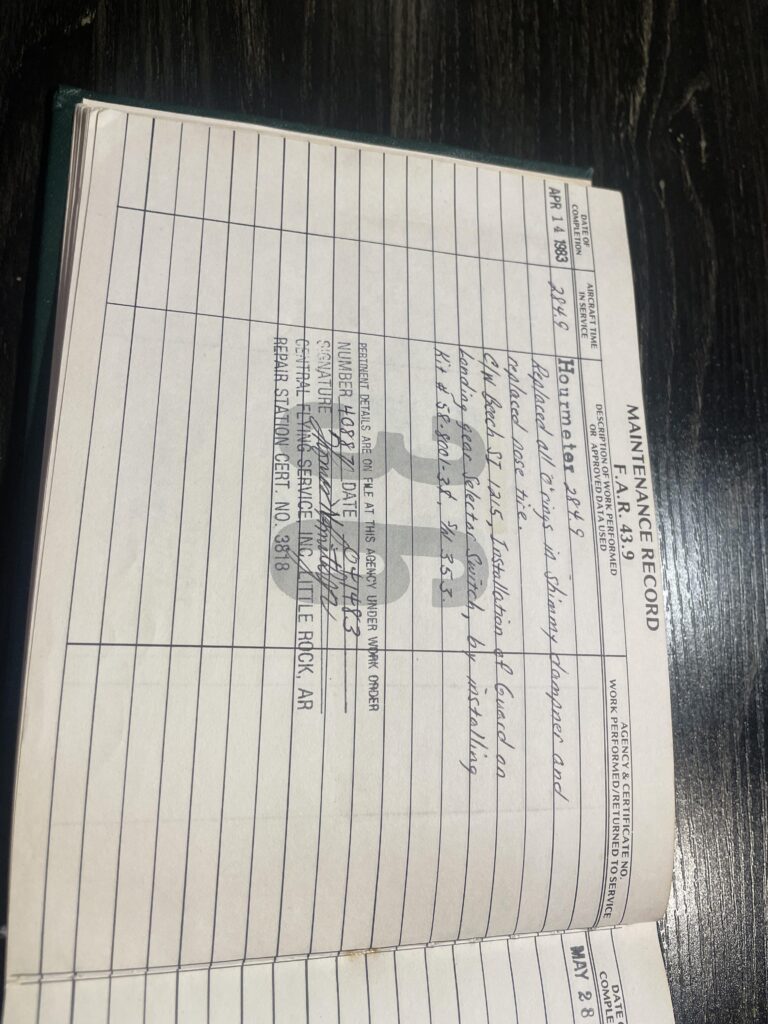 MAINTENANCE RECORD
F.A.R. 43.9
DATE OF COMPLETION
AIRCRAFT TIME IN SERVICE
DESCRIPTION OF WORK PERFORMED OR APPROVED DATA USED
AGENCY & CERTIFICATE NO. WORK PERFORMED/RETURNED TO SERVICE
APR 14 1983 284.9 Hourmeter 284.9
Replaced all "o" rings in shimmy dampner and
replaced nose tire.
C/W Beech SI 1215, Installation of Guard on
Landing gear Selector Switch, by installing
Kit # 58-8001-3S, S/N 353.
36
PERTINENT DETAILS ARE ON FILE AT THIS AGENCY UNDER WORK ORDER
NUMBER 40887 DATE 041483
SIGNATURE
CENTRAL FLYING SERVICE, INC. LITTLE ROCK, AR
REPAIR STATION CERT. NO. 3818
DATE
COMPLE
MAY 28